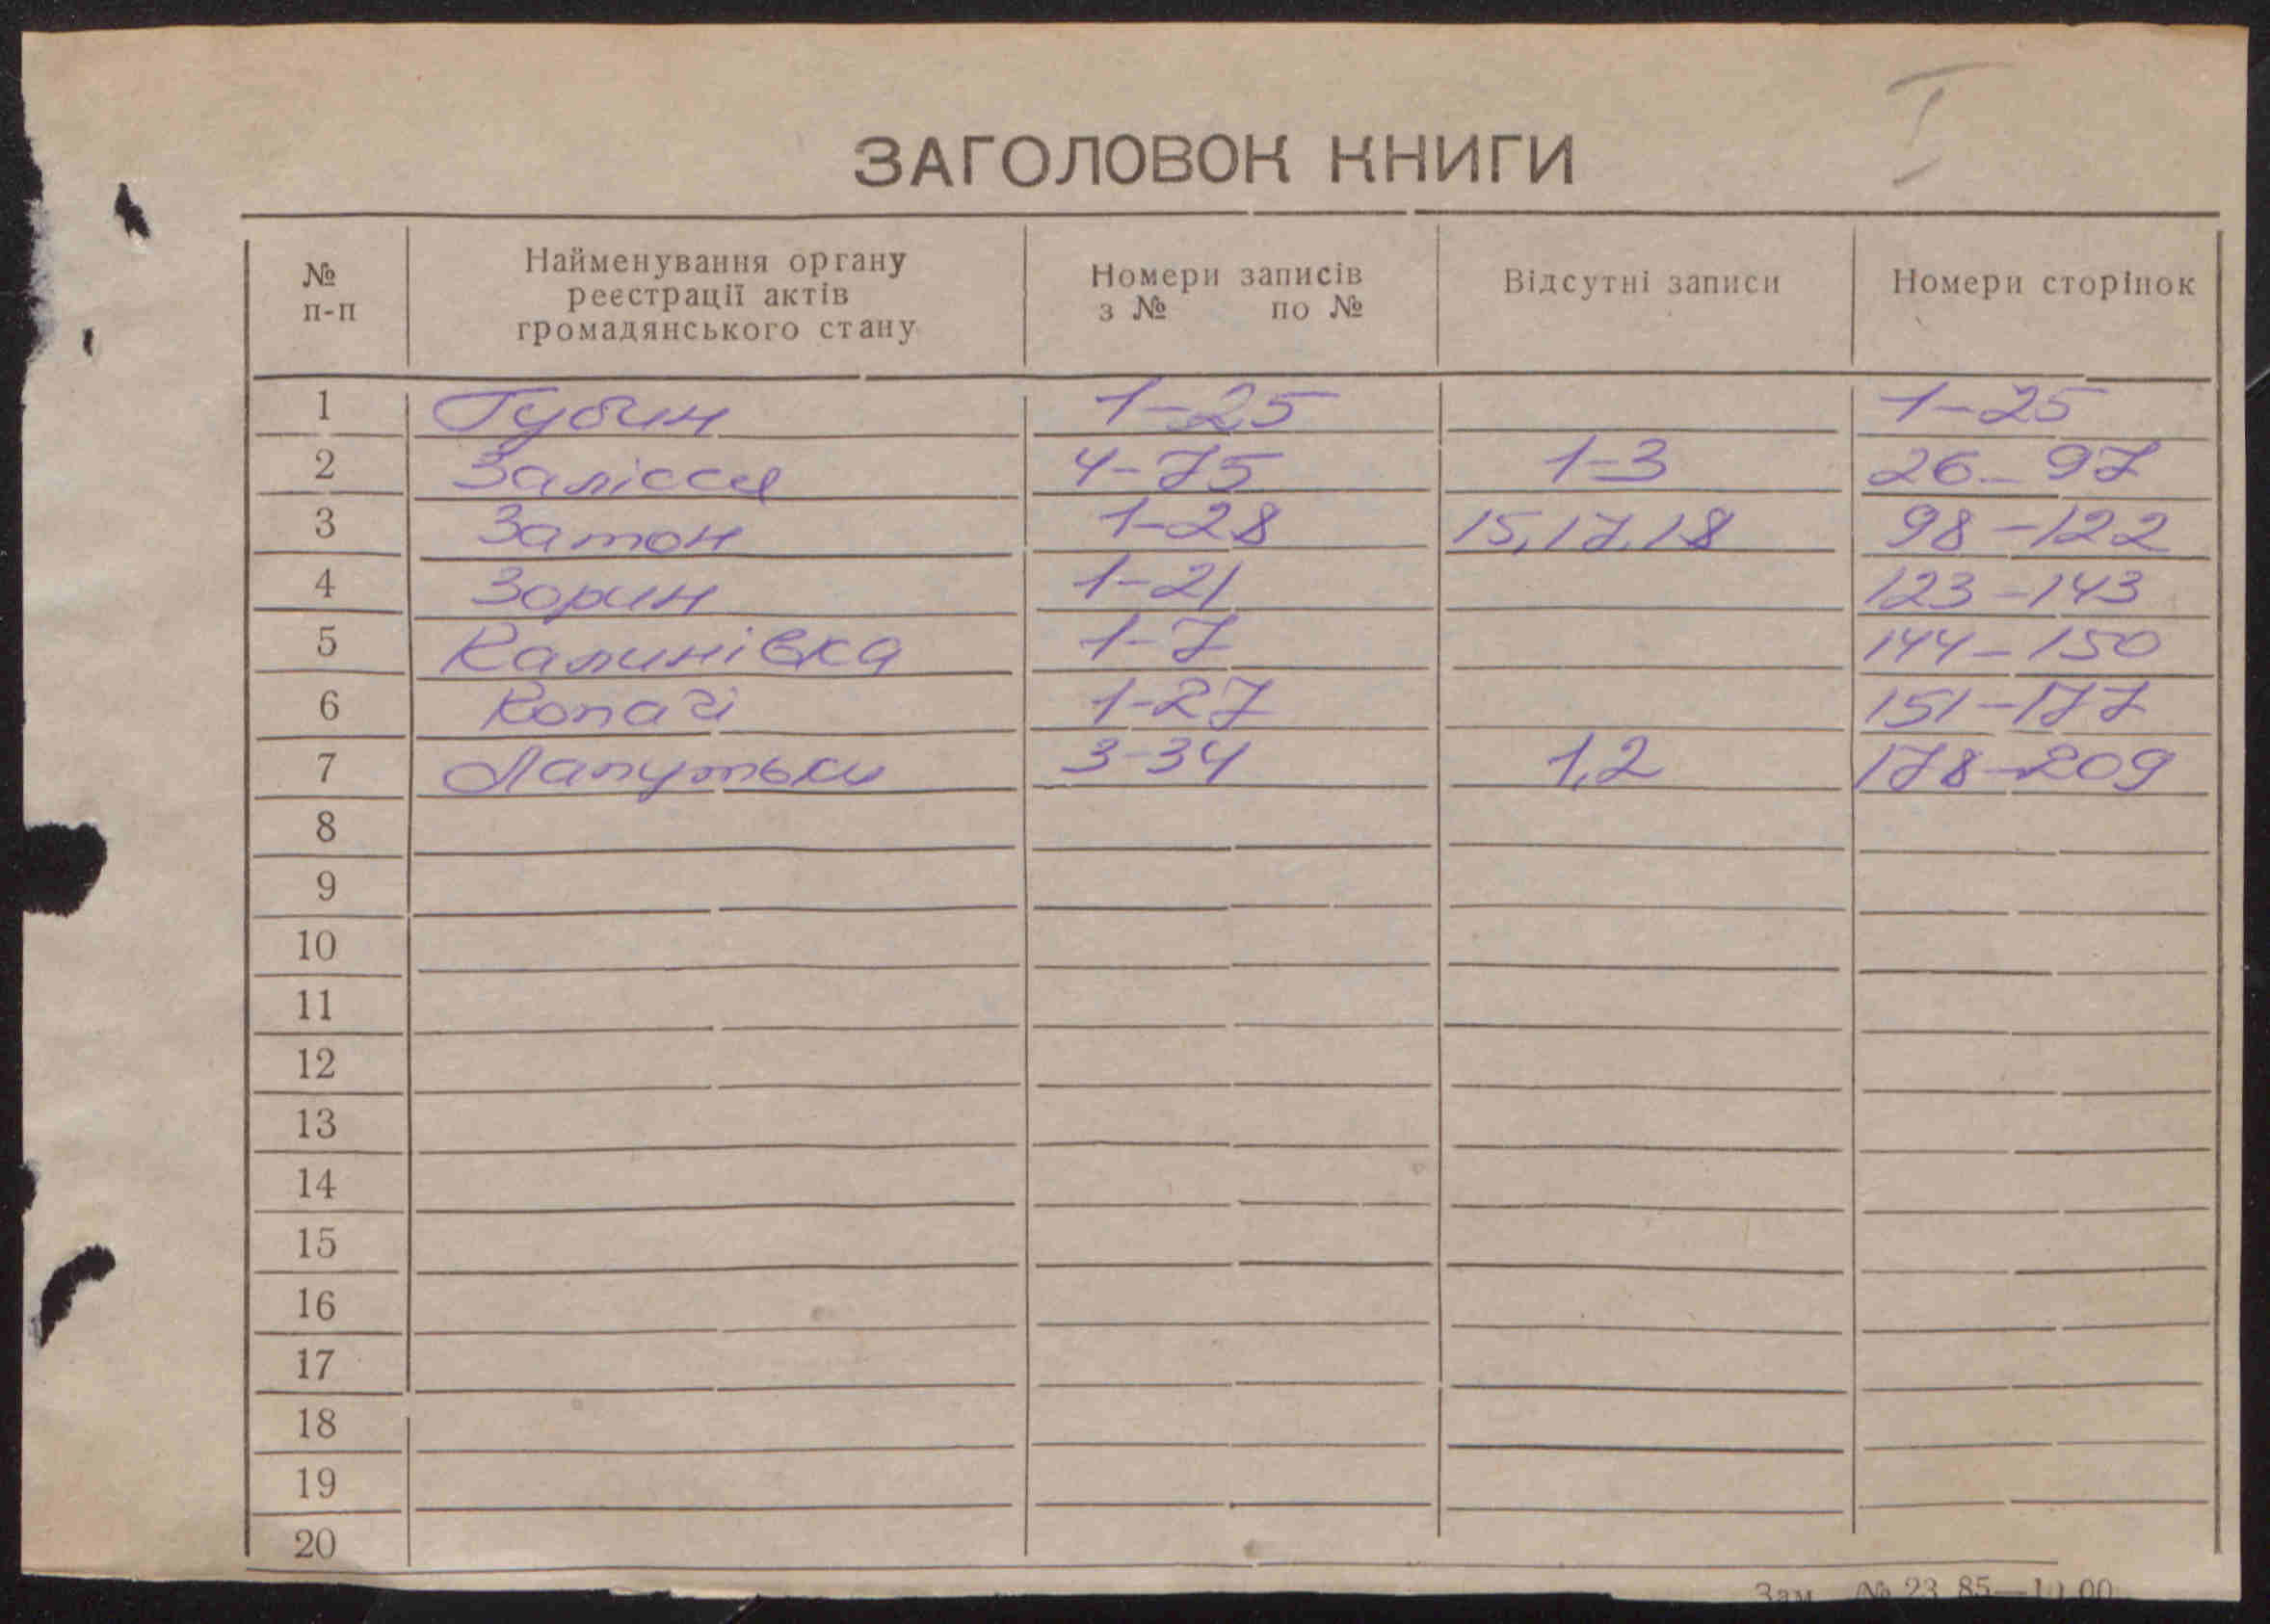 I
ЗАГОЛОВОК КНИГИ
№ п-п
Найменування органу реєстрації актів громадянського стану
Номери записів з № по №
Відсутні записи
Номери сторінок
1 Губин 1-25 1-25
2 Залісся 4-75 1-3 26-97
3 Затон 1-28 15,17,18 98-122
4 Зорин 1-21 123-143
5 Калинівка 1-7 144-150
6 Копачі 1-27 151-177
7 Лапутьки 3-34 1,2 178-209
8
9
10
11
12
13
14
15
16
17
18
19
20
Зам. № 23 85—10.00